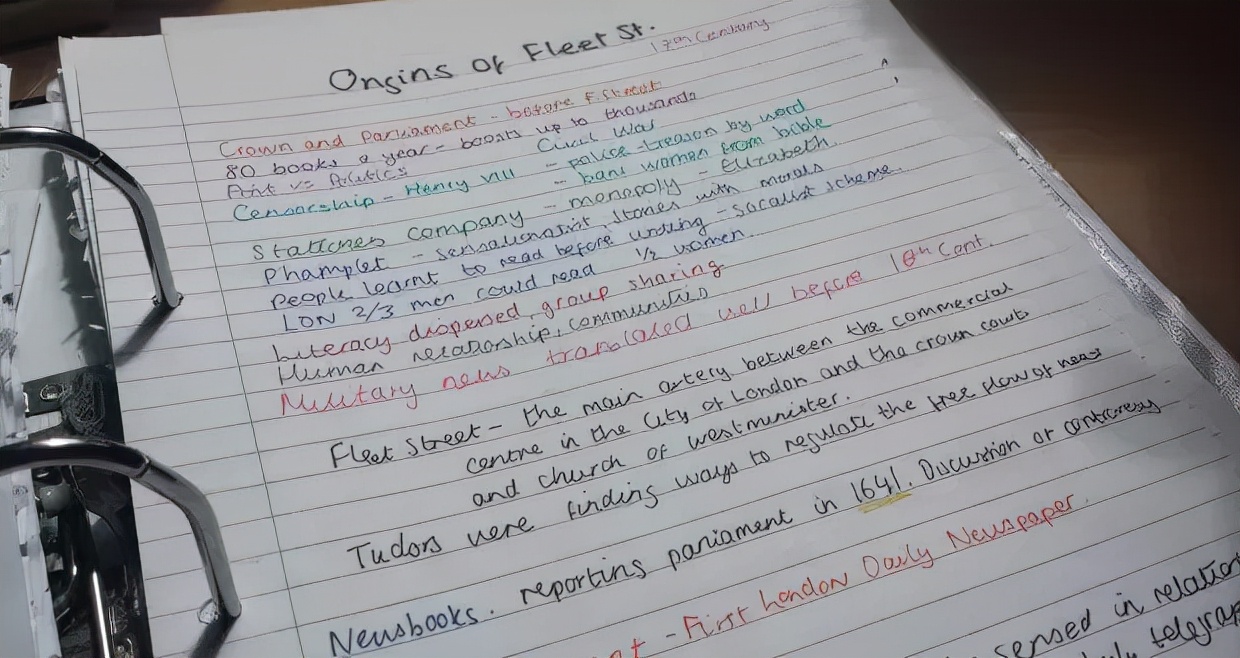 Origins of Fleet St.
17th Century
Crown and Parliament - before F.Street
80 books a year - boosts up to thousands
Civil War
Censorship - Henry VIII - police - treason by word
- bans women from bible
Stationers company - monopoly - Elizabeth.
Phamplet - sensationalist stories with morals
people learnt to read before writing - scheme.
LON 2/3 men could read 1/2 women
Literacy dispersed, group sharing
Human relationship, communities
Military news translated well before 18th Cent.
Fleet Street - the main artery between the commercial
centre in the City of London and the crown courts
and church of westminister.
Tudors were finding ways to regulate the free flow of news
Newsbooks. reporting parliament in 1641. Discussion or controversy
- First London Daily Newspaper.
sensed in relation